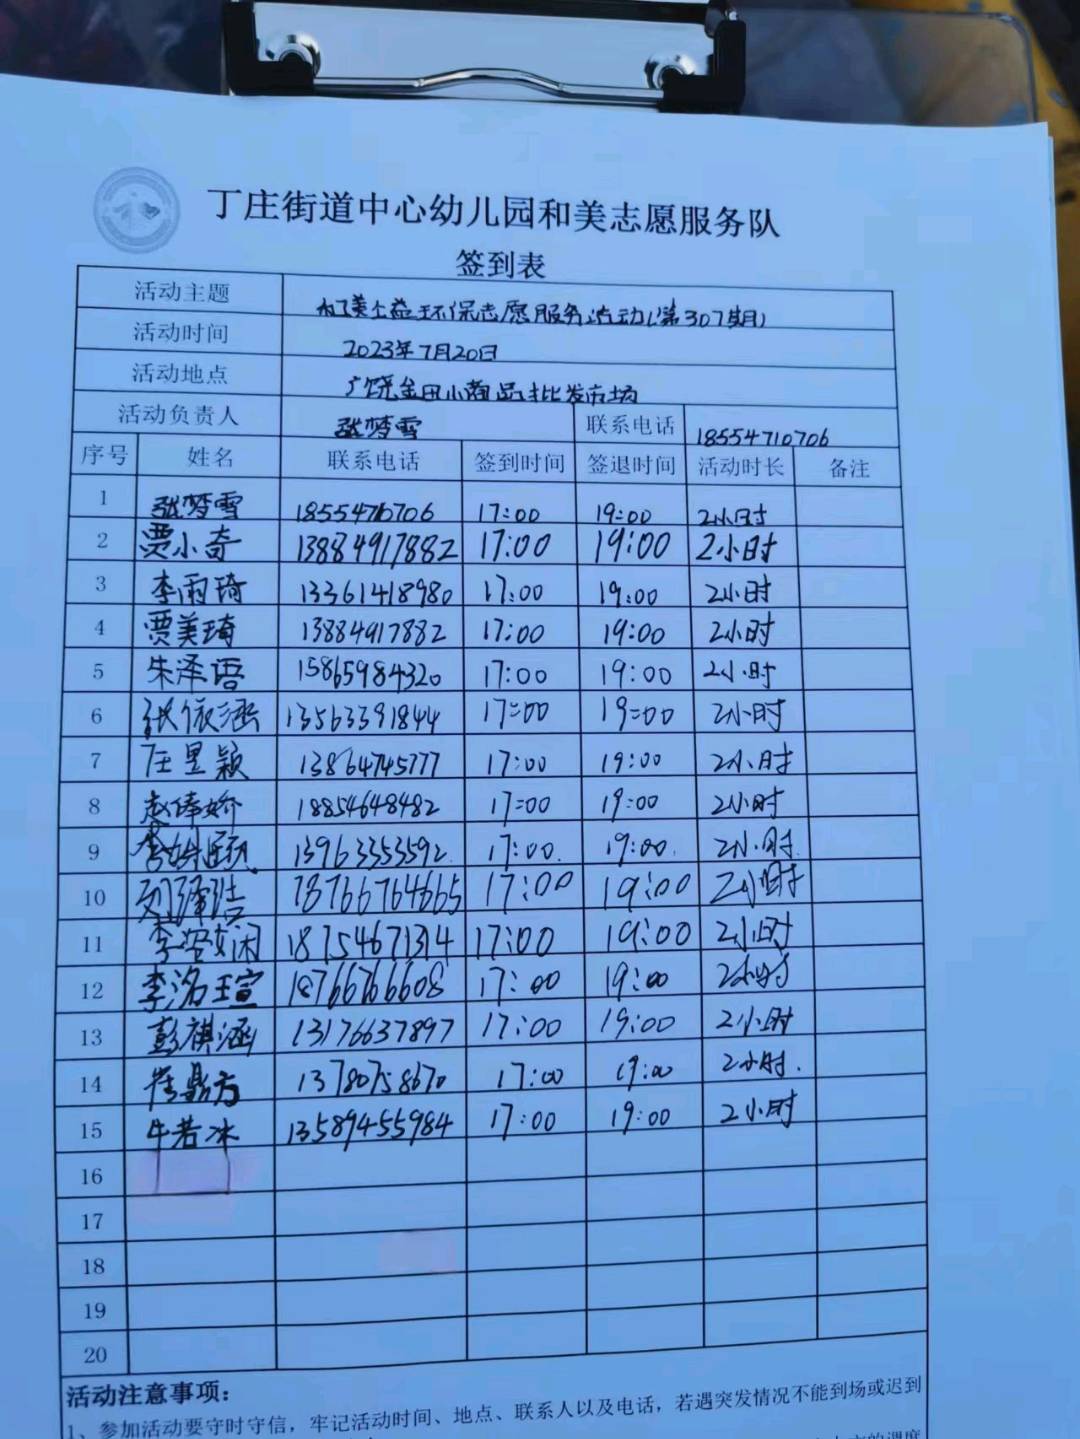 丁庄街道中心幼儿园和美志愿服务队
签到表
活动主题 和美公益环保志愿服务活动(第307期)
活动时间 2023年7月20日
活动地点 广饶金田小商品批发市场
活动负责人 张梦雪 联系电话 18554710706
序号 姓名 联系电话 签到时间 签退时间 活动时长 备注
1 张梦雪 18554710706 17:00 19:00 2小时
2 贾小奇 13884917882 17:00 19:00 2小时
3 李雨琦 13361418980 17:00 19:00 2小时
4 贾美琦 13884917882 17:00 19:00 2小时
5 朱泽语 15865984320 17:00 19:00 2小时
6 张依涵 13563391844 17:00 19:00 2小时
7 任昱颖 13864745777 17:00 19:00 2小时
8 18854648482 17:00 19:00 2小时
9 13963353592 17:00 19:00 2小时
10 刘泽浩 18766764665 17:00 19:00 2小时
11 18754671314 17:00 19:00 2小时
12 李洺瑄 18766766608 17:00 19:00 2小时
13 彭祺涵 13176637897 17:00 19:00 2小时
14 崔鼎方 13780758670 17:00 19:00 2小时
15 牛若冰 13589455984 17:00 19:00 2小时
16
17
18
19
20
活动注意事项:
1、参加活动要守时守信，牢记活动时间、地点、联系人以及电话，若遇突发情况不能到场或迟到